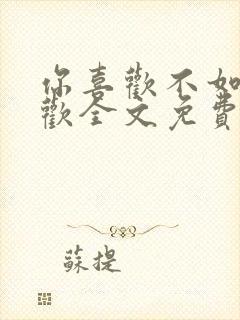 你喜歡不如
歡全文免費
蘇提